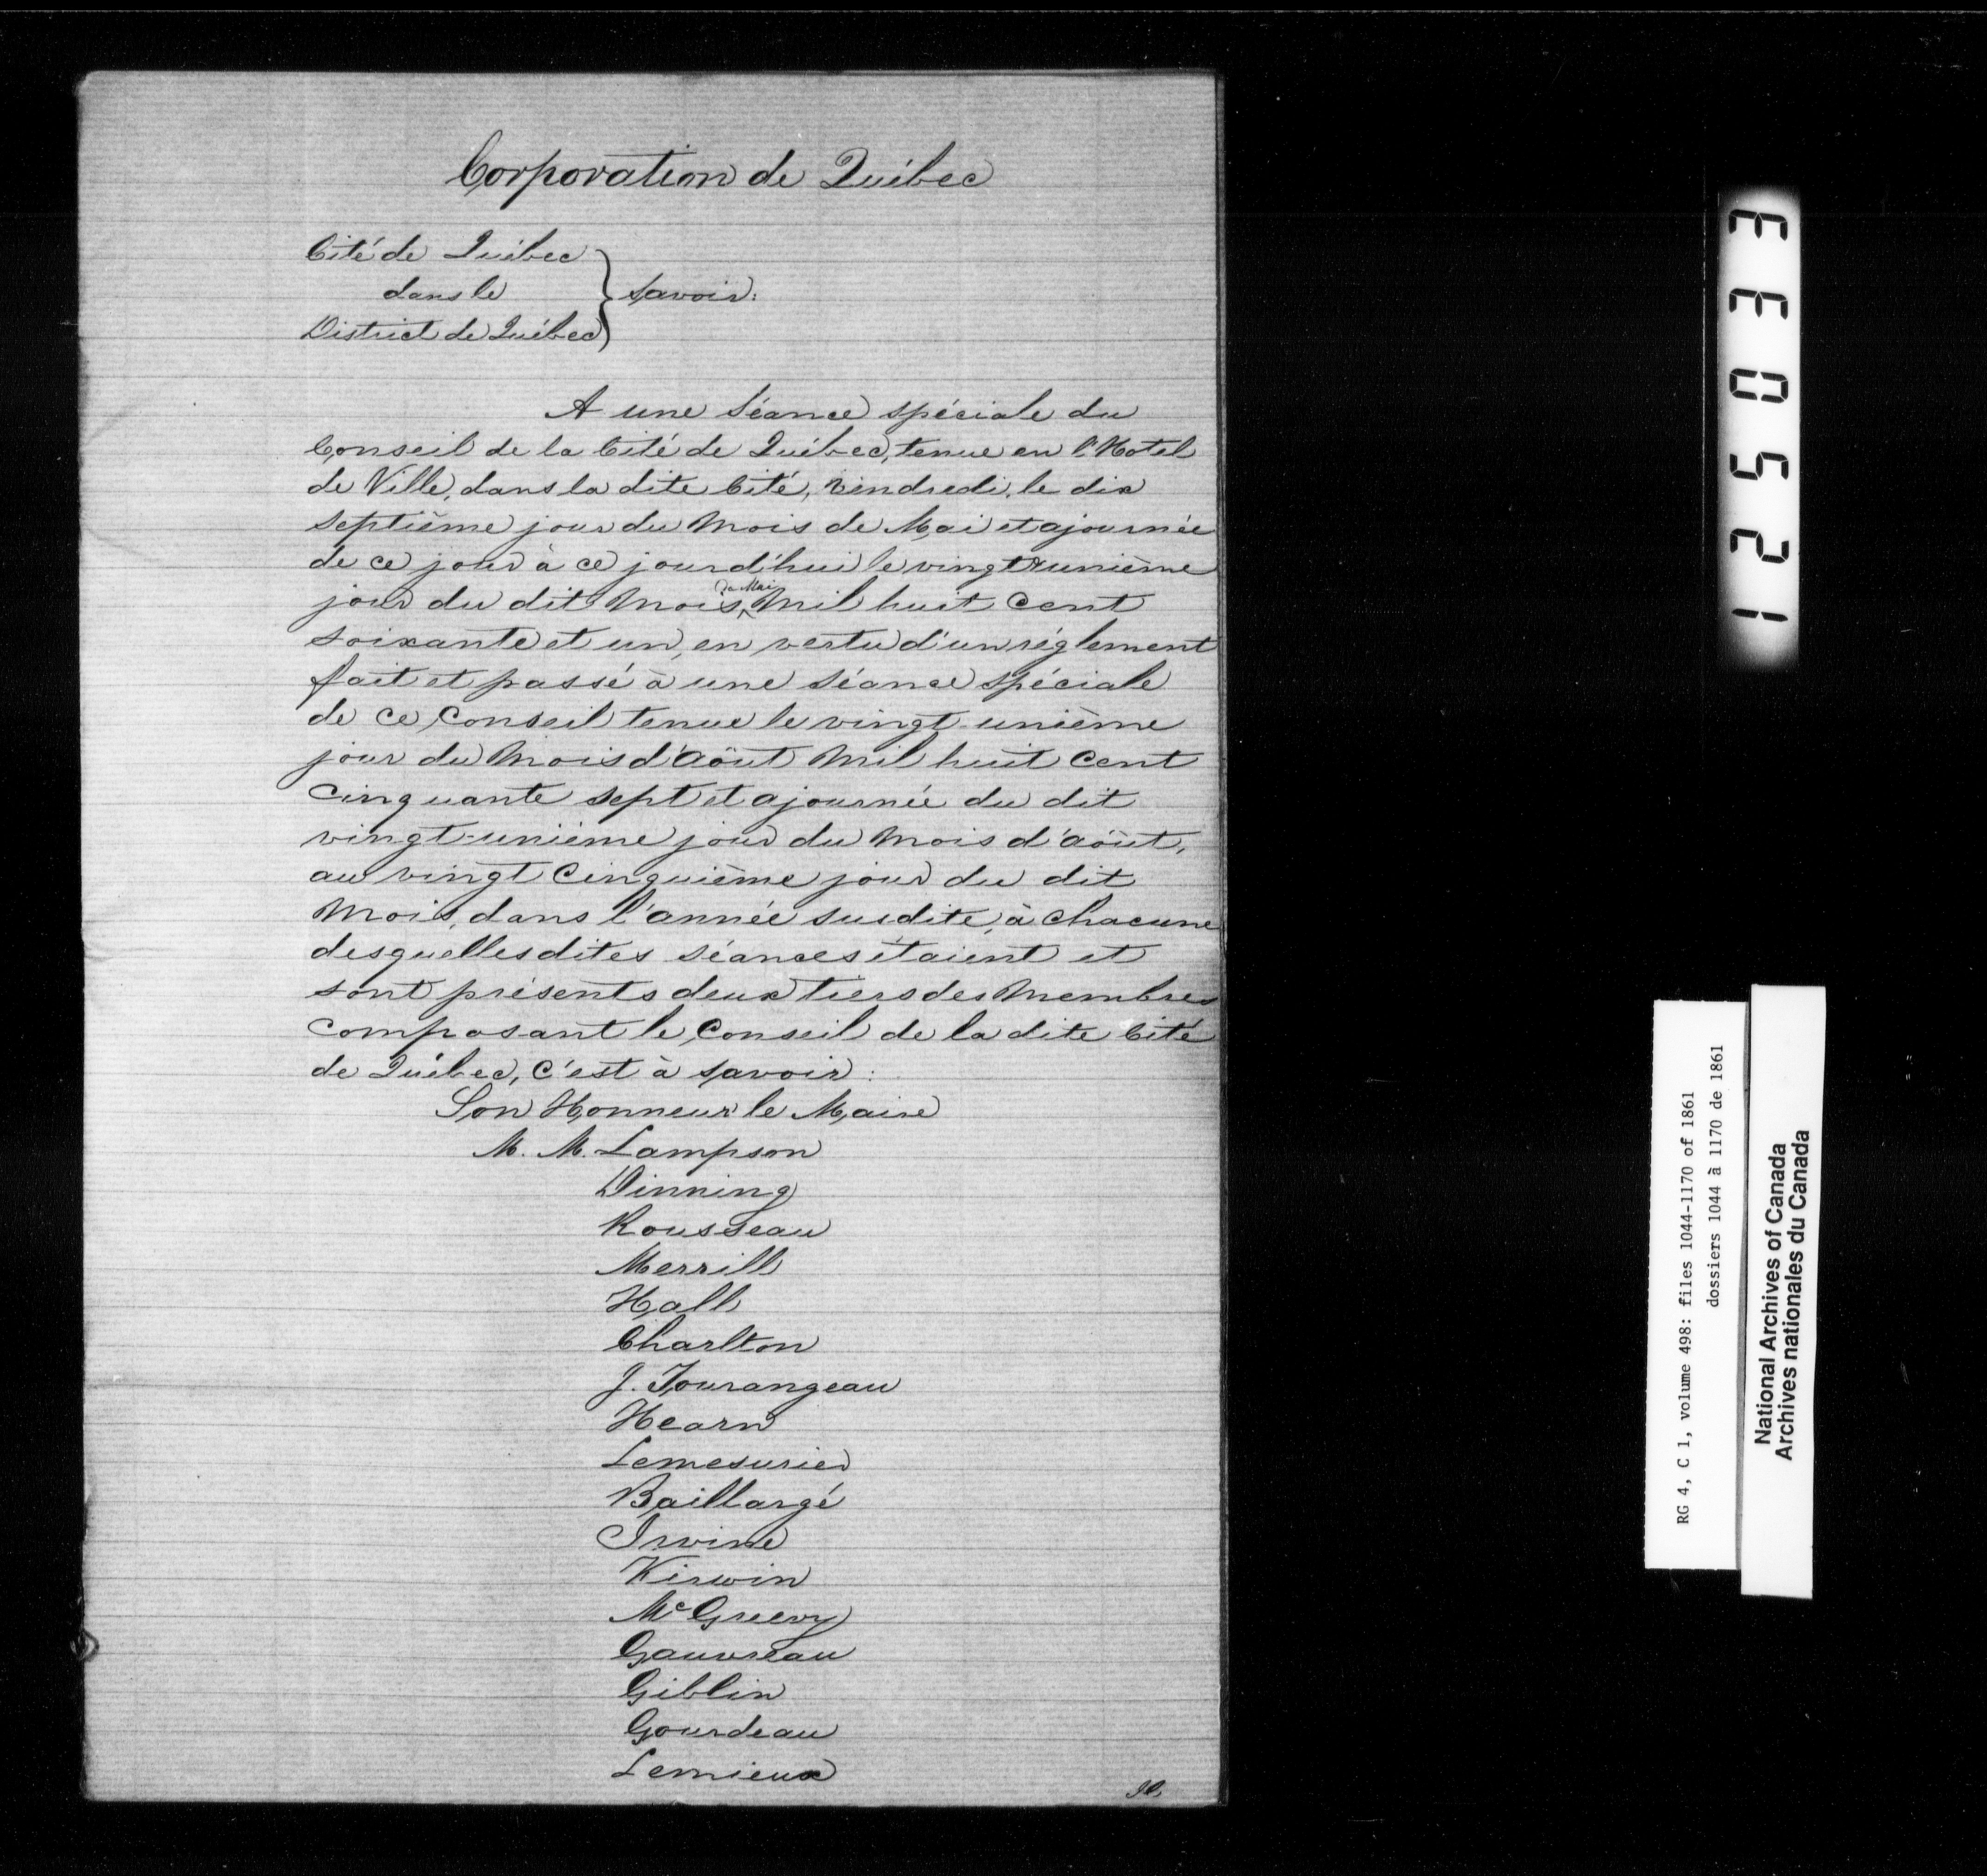 Corporation de Québec
Cité de Québec
dans le } savoir:
District de Québec
A une Séance spéciale du
Conseil de la Cité de Québec, tenue en l'Hotel
de Ville, dans la dite Cité, Vendredi, le dix
septième jour du Mois de Mai et ajournée
de ce jour à ce jourd'hui le vingt unième
jour du dit Mois de Mai Mil huit Cent
soixante et un, en vertu d'un réglement
fait et passé à une Séance spéciale
de ce Conseil tenue le vingt-unième
jour du Mois d'Août Mil huit Cent
Cinquante sept et ajournée du dit
vingt-unième jour du Mois d'août,
au vingt Cinquième jour du dit
Mois, dans l'année susdite, à Chacune
desquelles dites séances étaient et
sont présents deux tiers des Membres
composant le Conseil de la dite Cité
de Québec, C'est à savoir:
Son Honneur le Maire
M. M. Lampson
Dinning
Rousseau
Merrill
Hall
Charlton
J. Tourangeau
Hearn
Lemesurier
Baillargé
Irvine
Kirwin
McGreevy
Gauvreau
Giblin
Gourdeau
Lemieux
125033
RG 4, C 1, volume 498: files 1044-1170 of 1861
dossiers 1044 à 1170 de 1861
National Archives of Canada
Archives nationales du Canada